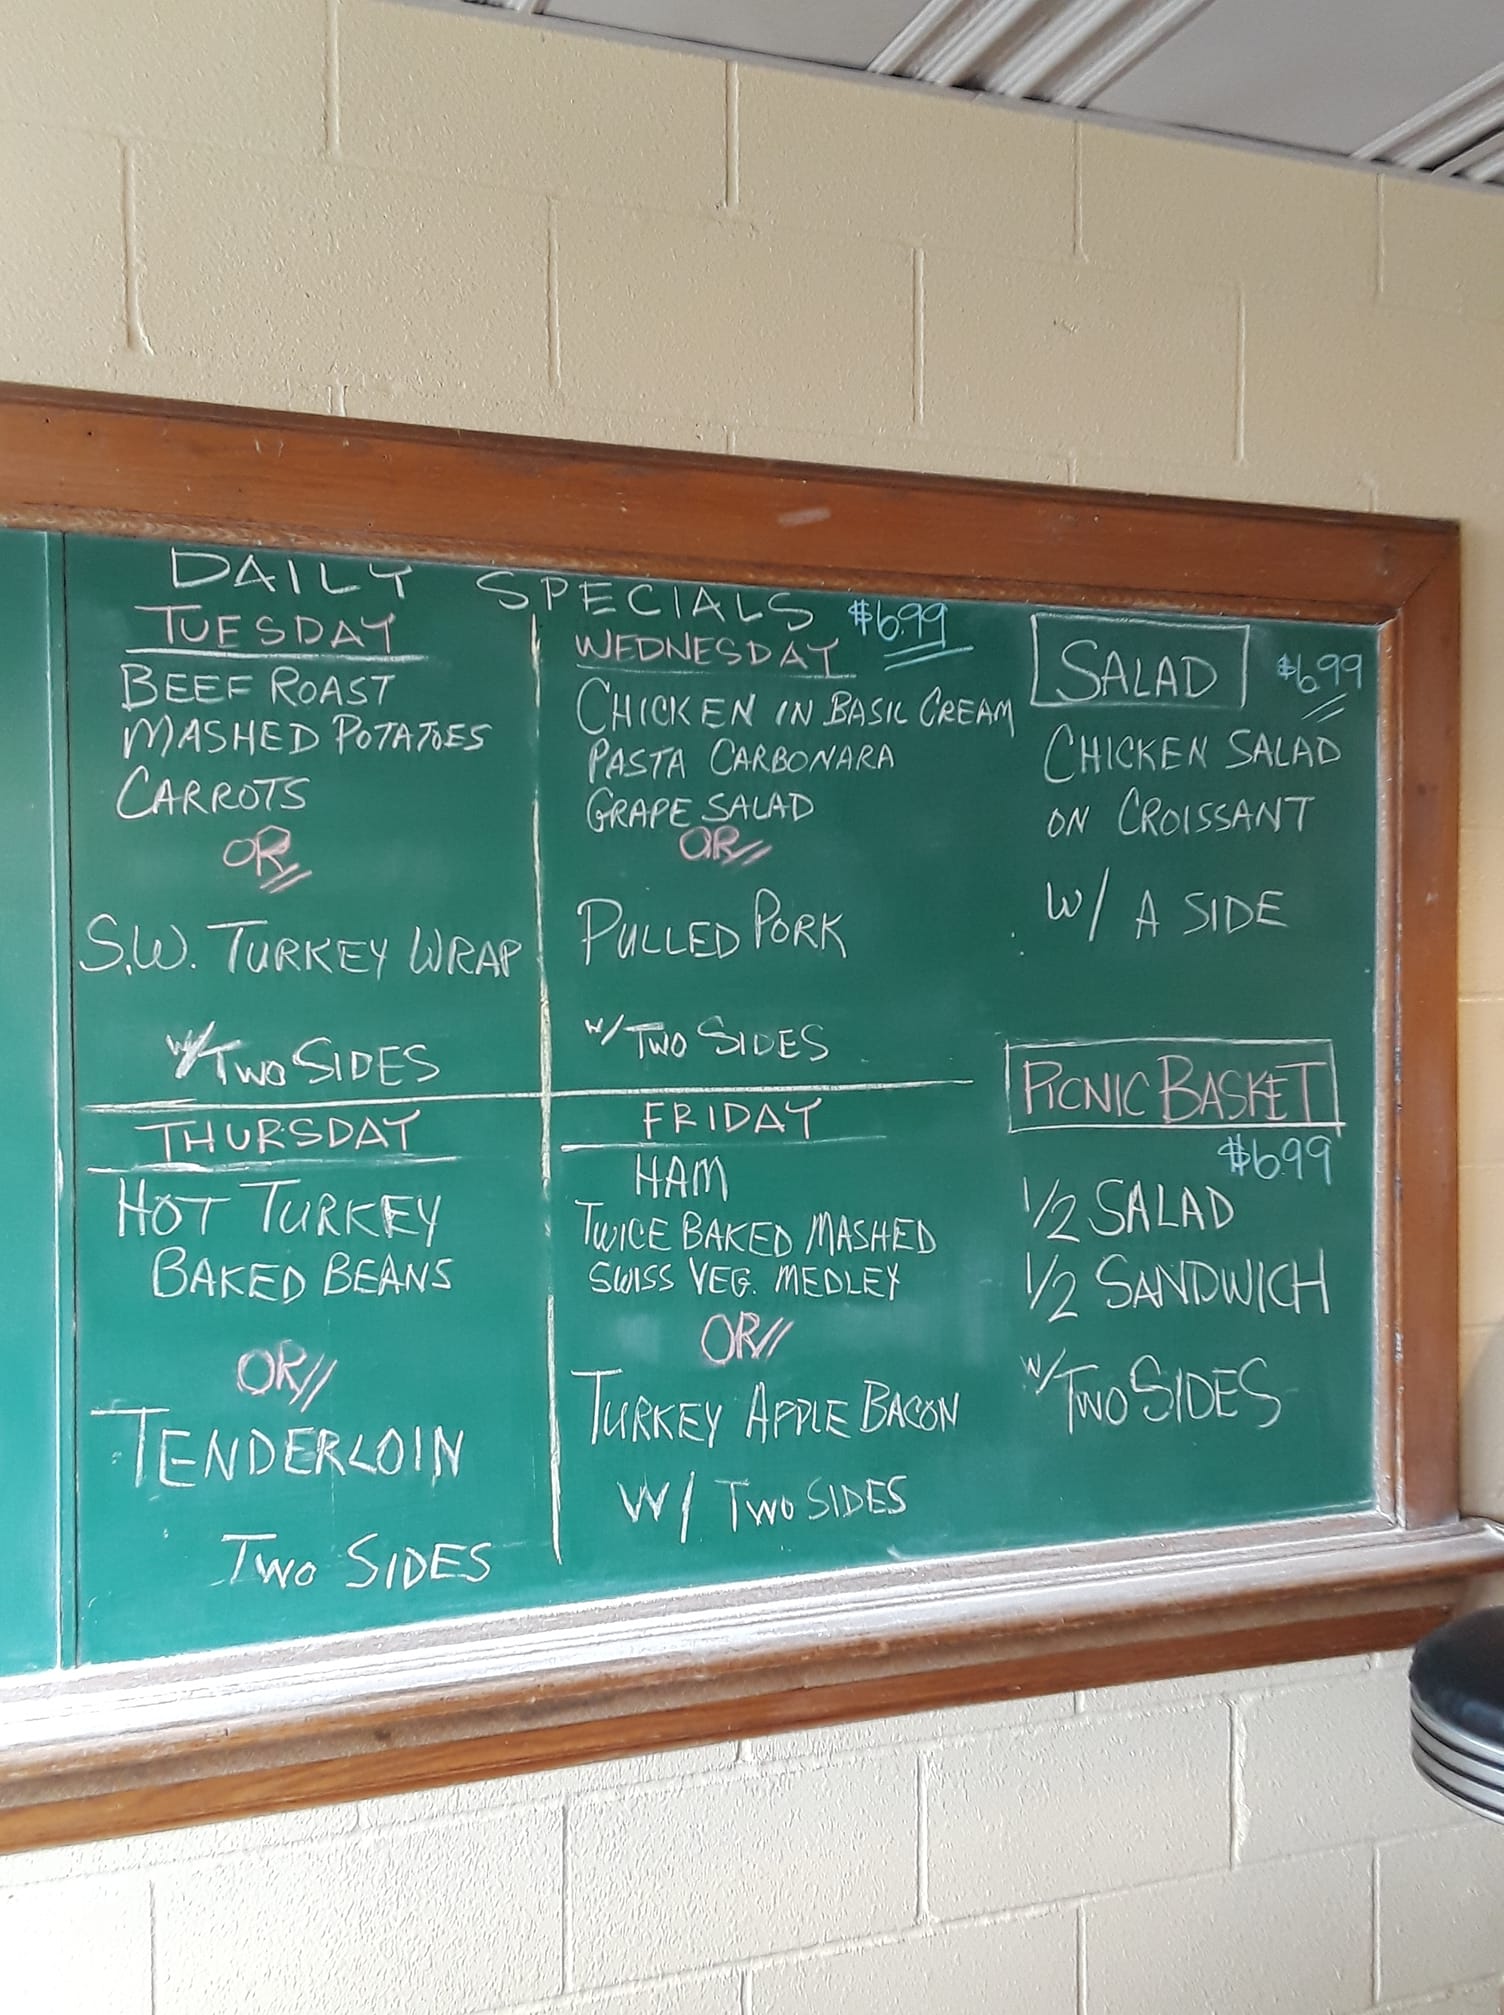 DAILY SPECIALS $6.99
TUESDAY
BEEF ROAST
MASHED POTATOES
CARROTS
OR
S.W. TURKEY WRAP
W/ TWO SIDES
WEDNESDAY
CHICKEN IN BASIL CREAM
PASTA CARBONARA
GRAPE SALAD
OR
PULLED PORK
W/ TWO SIDES
THURSDAY
HOT TURKEY
BAKED BEANS
OR
TENDERLOIN
TWO SIDES
FRIDAY
HAM
TWICE BAKED MASHED
SWISS VEG. MEDLEY
OR
TURKEY APPLE BACON
W/ TWO SIDES
SALAD $6.99
CHICKEN SALAD
ON CROISSANT
W/ A SIDE
PICNIC BASKET
$6.99
1/2 SALAD
1/2 SANDWICH
W/ TWO SIDES